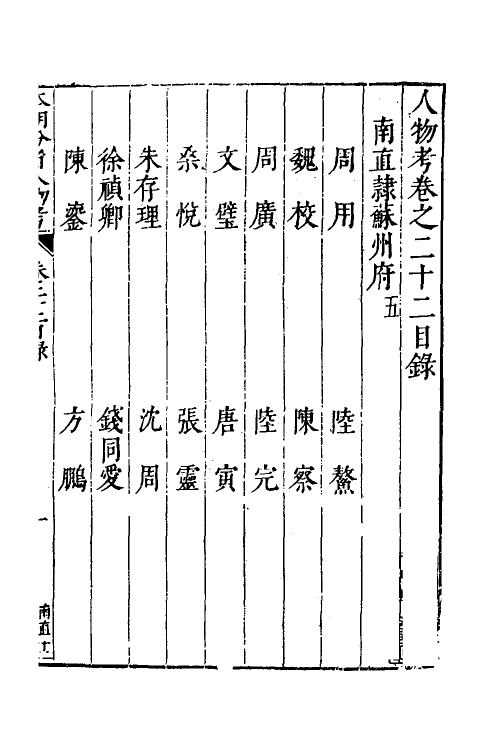 人物考卷之二十二目錄
南直隸蘇州府五
周用 陸鰲
魏校 陳察
周廣 陸完
文璧 唐寅
桑悅 張靈
朱存理 沈周
徐禎卿 錢同愛
陳鎏 方鵬
本朝分省人物考 卷二十二目錄 一 南直十二